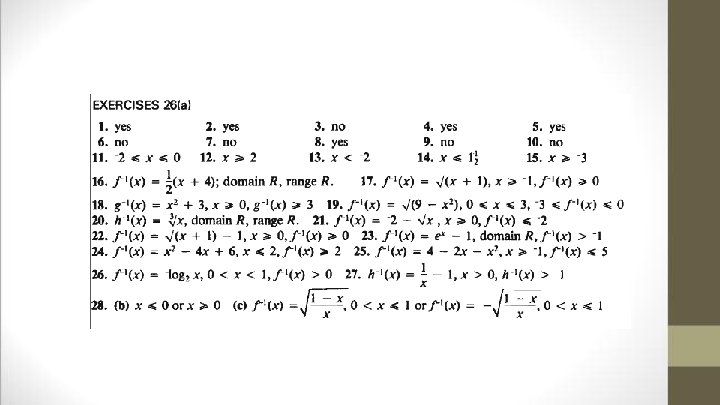 EXERCISES 26(a)
1. yes 2. yes 3. no 4. yes 5. yes
6. no 7. no 8. yes 9. no 10. no
11. ⁻2 ⩽ x ⩽ 0 12. x ⩾ 2 13. x < ⁻2 14. x ⩽ 1½ 15. x ⩾ ⁻3
16. f⁻¹(x) = ½(x + 4); domain R, range R. 17. f⁻¹(x) = √(x + 1), x ⩾ ⁻1, f⁻¹(x) ⩾ 0
18. g⁻¹(x) = x² + 3, x ⩾ 0, g⁻¹(x) ⩾ 3 19. f⁻¹(x) = √(9 − x²), 0 ⩽ x ⩽ 3, ⁻3 ⩽ f⁻¹(x) ⩽ 0
20. h⁻¹(x) = ∛x, domain R, range R. 21. f⁻¹(x) = ⁻2 − √x, x ⩾ 0, f⁻¹(x) ⩽ ⁻2
22. f⁻¹(x) = √(x + 1) − 1, x ⩾ 0, f⁻¹(x) ⩾ 0 23. f⁻¹(x) = eˣ − 1, domain R, f⁻¹(x) > ⁻1
24. f⁻¹(x) = x² − 4x + 6, x ⩽ 2, f⁻¹(x) ⩾ 2 25. f⁻¹(x) = 4 − 2x − x², x ⩾ ⁻1, f⁻¹(x) ⩽ 5
26. f⁻¹(x) = ⁻log₂ x, 0 < x < 1, f⁻¹(x) > 0 27. h⁻¹(x) = 1/x − 1, x > 0, h⁻¹(x) > ⁻1
28. (b) x ⩽ 0 or x ⩾ 0 (c) f⁻¹(x) = √((1 − x)/x), 0 < x ⩽ 1 or f⁻¹(x) = −√((1 − x)/x), 0 < x ⩽ 1